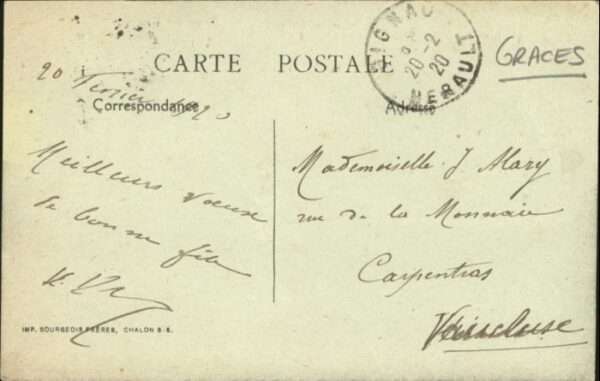 CARTE POSTALE
GRACES
20 Février 1920
Correspondance
Adresse
GIGNAC
20-2
20
HERAULT
Meilleurs voeux
de bonne fête
Mademoiselle J. Mary
rue de la Monnaie
Carpentras
Vaucluse
IMP. BOURGEOIS FRÈRES, CHALON S-S.